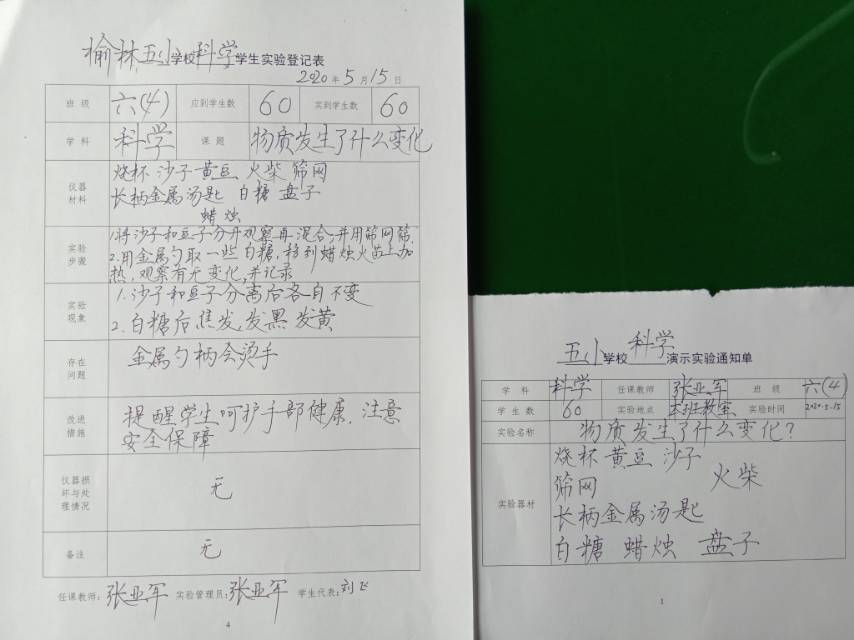 榆林五小学校科学学生实验登记表
2020年5月15日
班级 六(4) 应到学生数 60 实到学生数 60
学科 科学 课题 物质发生了什么变化
仪器材料
烧杯 沙子 黄豆 火柴 筛网
长柄金属汤匙 白糖 盘子
蜡烛
实验步骤
1.将沙子和豆子分开观察再混合,并用筛网筛.
2.用金属勺取一些白糖,移到蜡烛火苗上加
热,观察有无变化,并记录
实验现象
1.沙子和豆子分离后各自不变
2.白糖后焦发,发黑发黄
存在问题
金属勺柄会烫手
改进措施
提醒学生呵护手部健康,注意
安全保障
仪器损坏与处理情况
无
备注 无
任课教师:张亚军 实验管理员:张亚军 学生代表:刘飞
4
五小学校科学演示实验通知单
学科 科学 任课教师 张亚军 班级 六(4)
学生数 60 实验地点 本班教室 实验时间 2020.5.15
实验名称 物质发生了什么变化?
实验器材
烧杯 黄豆 沙子
筛网 火柴
长柄金属汤匙
白糖 蜡烛 盘子
1